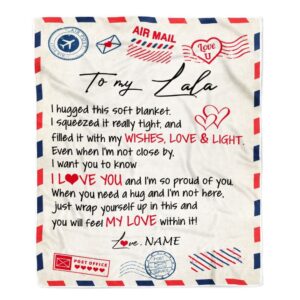 AIR MAIL
Love
U
To my Lala
I hugged this soft blanket.
I squeezed it really tight, and
filled it with my WISHES, LOVE & LIGHT.
Even when I'm not close by,
I want you to know
I LOVE YOU and I'm so proud of you.
When you need a hug and I'm not here,
just wrap yourself up in this and
you will feel MY LOVE within it!
Love, NAME
POST OFFICE